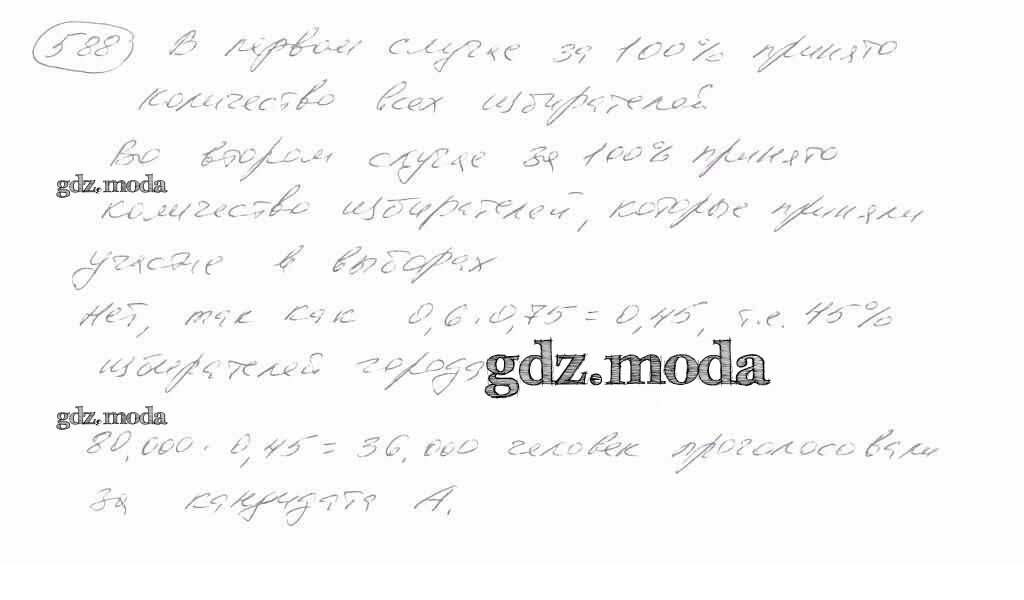 588 В первом случае за 100% принято
количество всех избирателей
Во втором случае за 100% принято
gdz.moda
количество избирателей, которые приняли
участие в выборах
Нет, так как 0,6 · 0,75 = 0,45, т.е. 45%
избирателей города
gdz.moda
gdz.moda
80,000 · 0,45 = 36,000 человек проголосовали
за кандидата А.